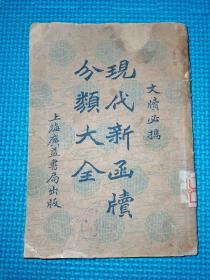 文牘必攜
現代新函牘
分類大全
上海廣益書局出版